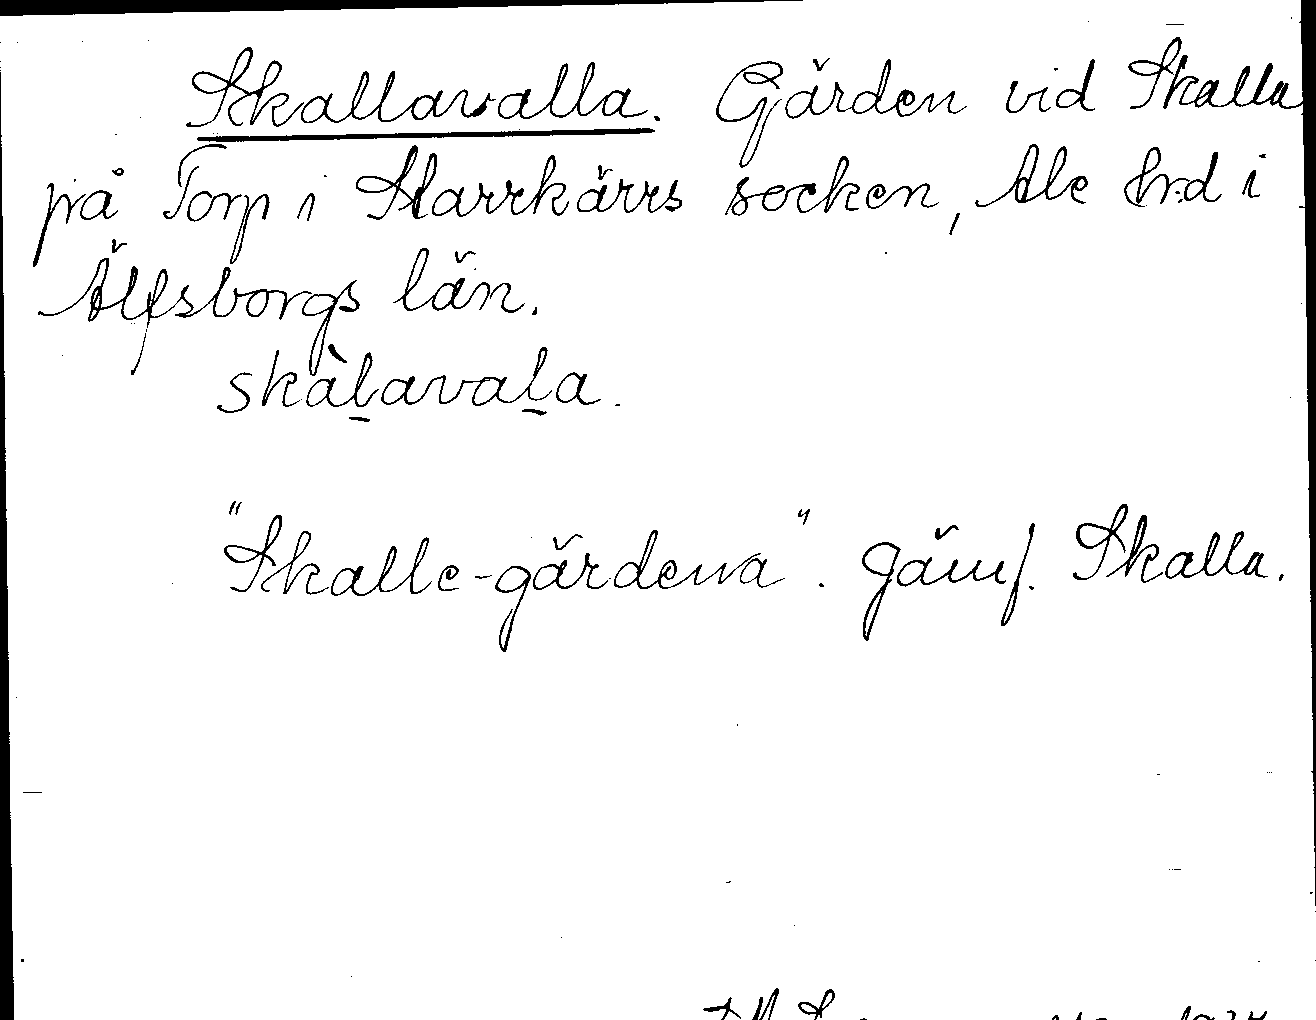 Skallavalla. Gärden vid Skalla
på Torp i Starrkärrs socken, Ale hrd i
Älfsborgs län.
skàl̠aval̠a.
"Skalle-gärdena". Jämf. Skalla.